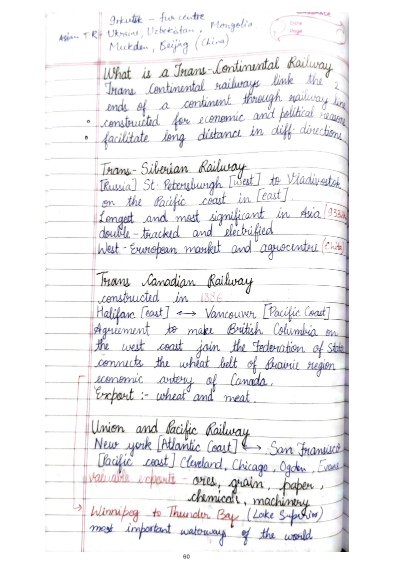 Irkutsk - fur centre
Asian T.R - Ukraine, Uzbekistan, Mongolia,
Mukden, Beijing (China)
Date
Page
What is a Trans-Continental Railway
Trans Continental railways link the 2
ends of a continent through railway line
constructed for economic and political reasons
facilitate long distance in diff. directions
Trans-Siberian Railway
[Russia] St. Petersburgh [west] to Vladivostok
on the Pacific coast in [east]
Longest and most significant in Asia
double-tracked and electrified
West-European market and agrocentre [Chita]
Trans Canadian Railway
constructed in 1886
Halifax [east] ↔ Vancouver [Pacific Coast]
Agreement to make British Columbia on
the west coast join the Federation of State
connects the wheat belt of Prairie region
economic artery of Canada.
Export :- wheat and meat.
Union and Pacific Railway
New york [Atlantic Coast] ↔ San Fransisco
[Pacific coast] Cleveland, Chicago, Ogden,
valuable exports - ores, grain, paper,
chemicals, machinery
Winnipeg to Thunder Bay (Lake Superior)
most important waterways of the world
60